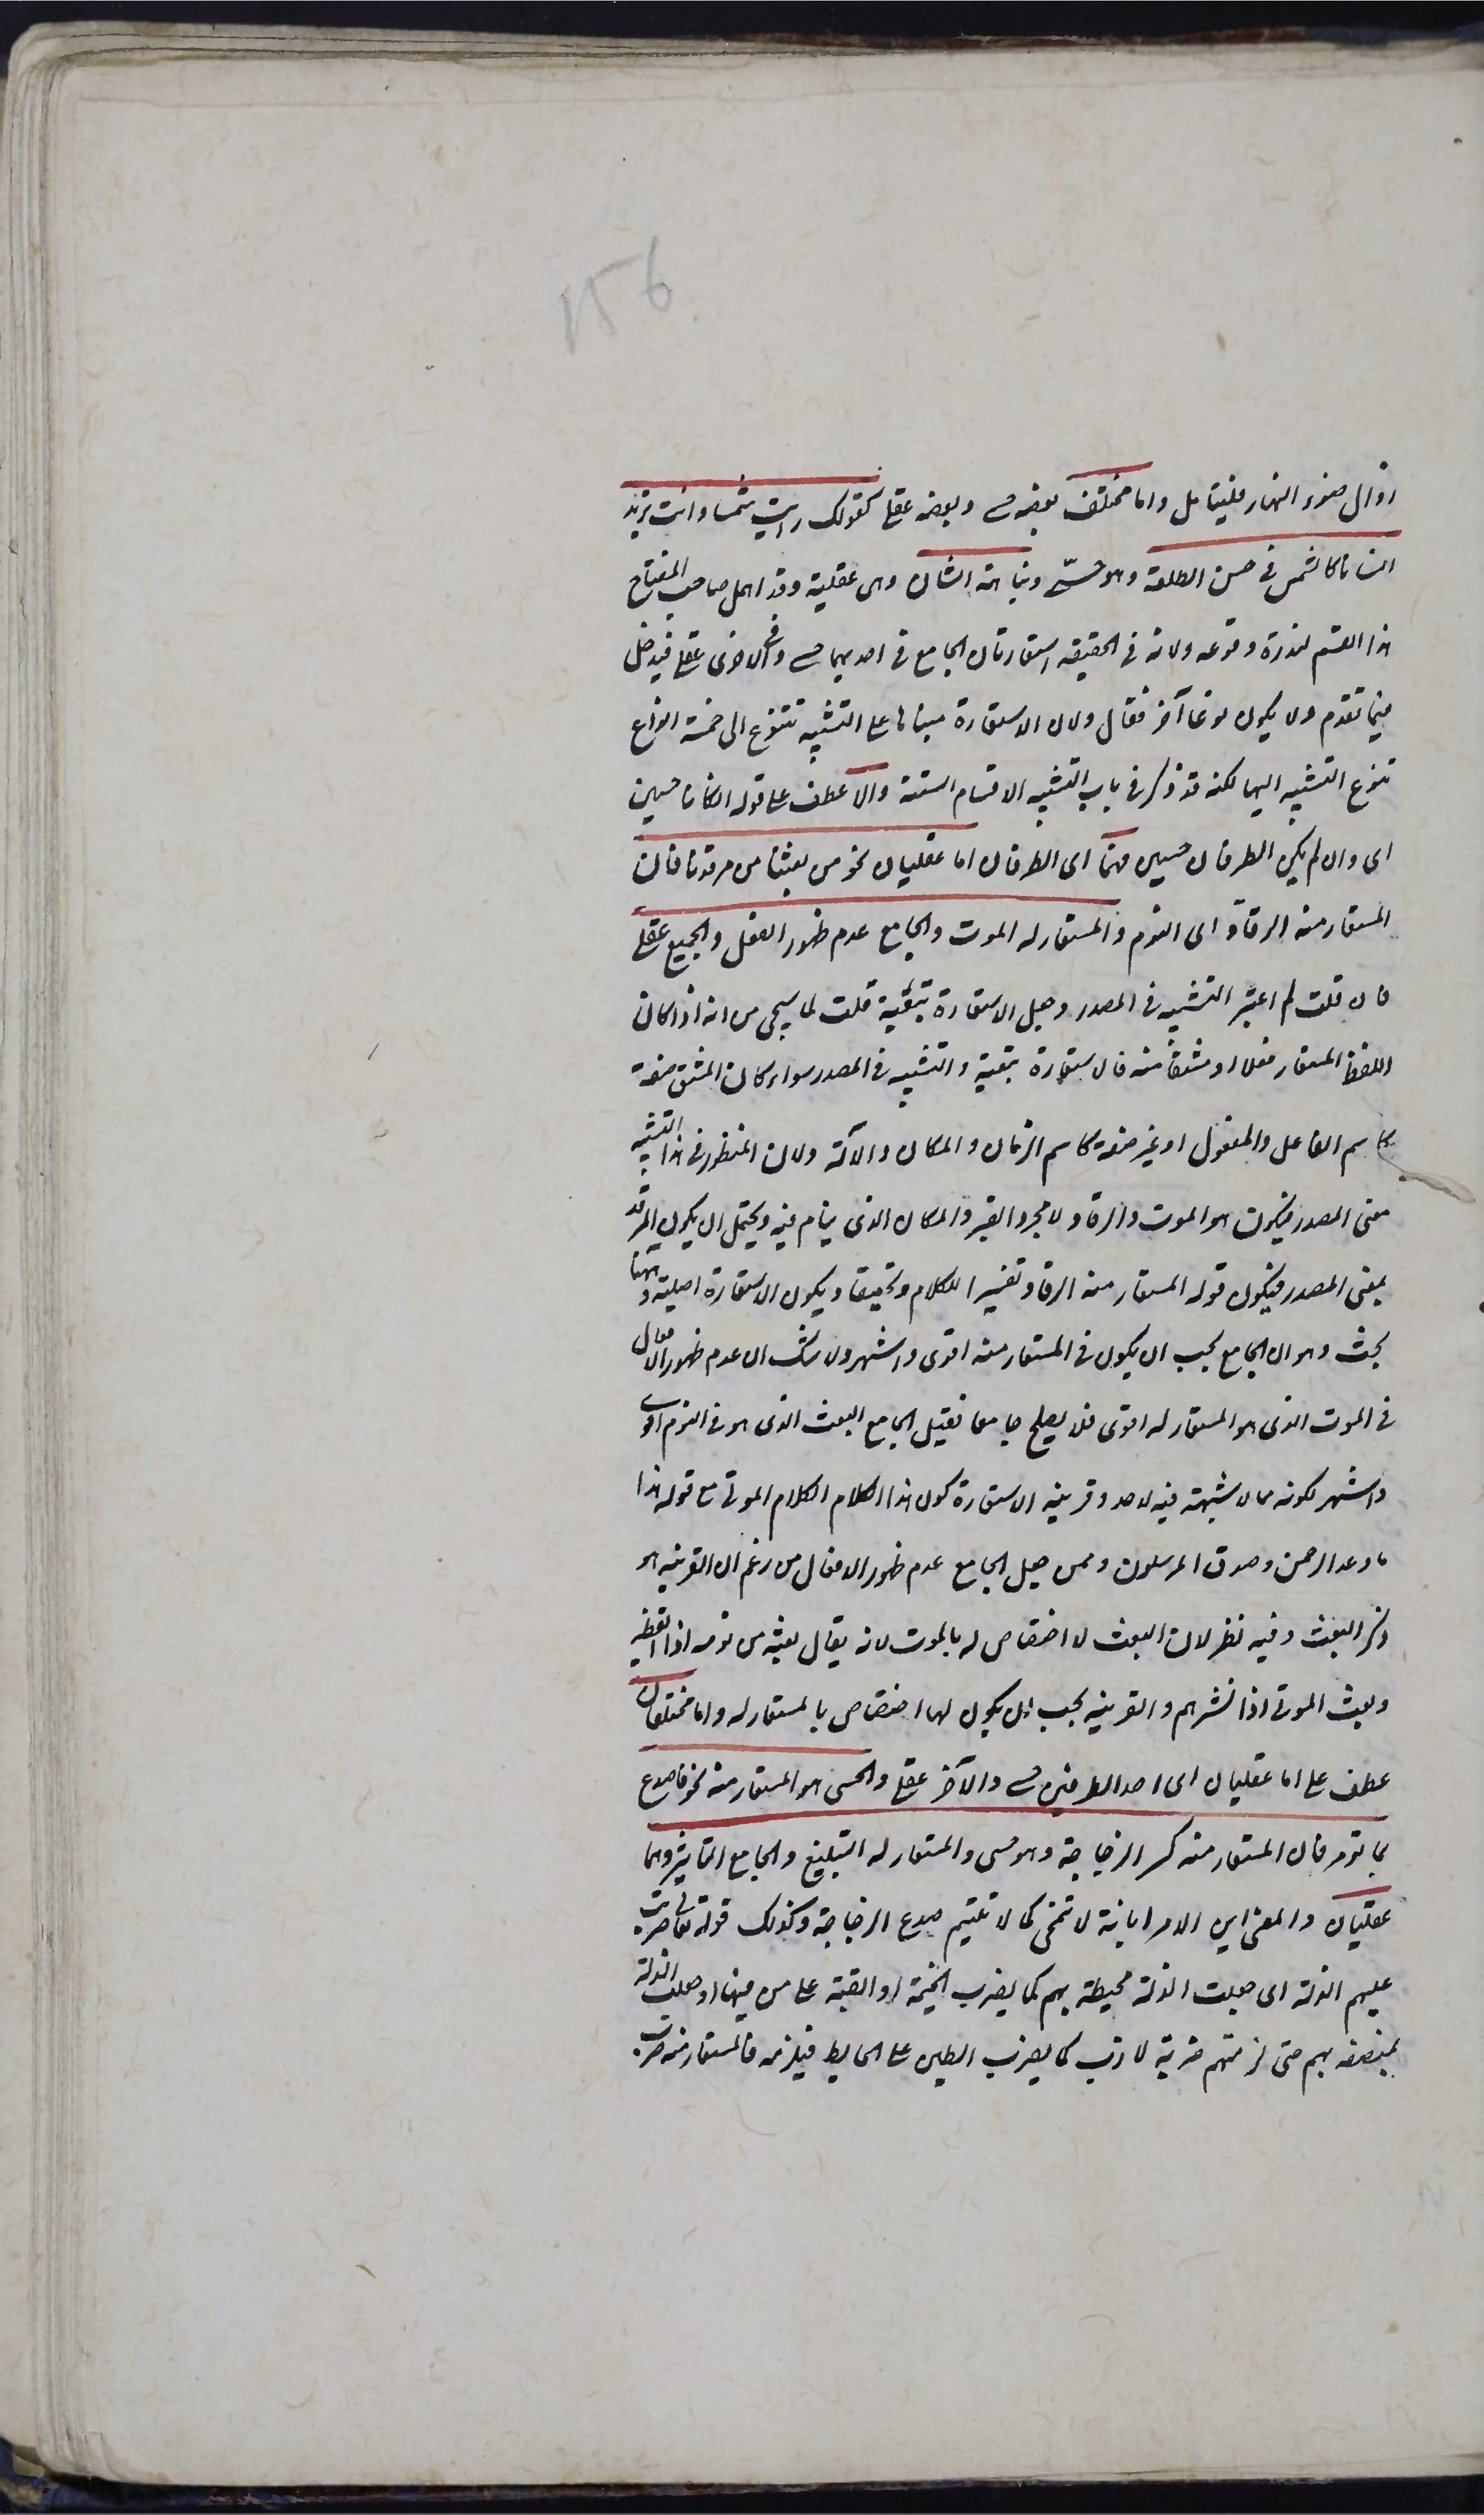 156
زوال ضوء النهار فليتأمل واما مختلف بعضه حسي وبعضه عقلي كقولك رايت شمسا وانت تريد
انسانا كالشمس في حسن الطلعة وهو حسّي ونباهة الشان وهي عقلية وقد اهمل صاحب المفتاح
هذا القسم لندرة وقوعه ولانه في الحقيقة استعارتان الجامع في احديهما حسي وفي الاخرى عقلي فيدخل
فيما تقدم ولا يكون نوعا آخر فقال ولان الاستعارة مبناها على التشبيه تتنوع الى خمسة انواع
تنوع التشبيه اليها لكنه قد ذكر في باب التشبيه الاقسام الستة والا عطف على قوله ان كانا حسيين
اى وان لم يكن الطرفان حسيين فهما اى الطرفان اما عقليان نحو من بعثنا من مرقدنا فان
المستعار منه الرقاد اى النوم والمستعار له الموت والجامع عدم ظهور الفعل والجميع عقلي
فان قلت لم اعتبر التشبيه في المصدر وجعل الاستعارة تبعية قلت لما سيجى من انه اذا كان
اللفظ المستعار فعلا او مشتقا منه فالاستعارة تبعية والتشبيه في المصدر سواء كان المشتق صفة
كاسم الفاعل والمفعول او غير صفة كاسم الزمان والمكان والآلة ولان المنظور في هذا التشبيه
معنى المصدر فيكون هو الموت والرقاد لا مجرد القبر والمكان الذى ينام فيه ويحتمل ان يكون المرقد
بمعنى المصدر فيكون قوله المستعار منه الرقاد تفسيرا للكلام وتحقيقا ويكون الاستعارة اصلية وههنا
بحث وهو ان الجامع يجب ان يكون في المستعار منه اقوى واشهر ولا شك ان عدم ظهور الافعال
في الموت الذى هو المستعار له اقوى فلا يصلح جامعا فقيل الجامع البعث الذى هو في النوم اقوى
واشهر لكونه مما لا شبهة فيه لاحد وقرينة الاستعارة كون هذا الكلام الكلام الموتى مع قوله هذا
ما وعد الرحمن وصدق المرسلون وممن جعل الجامع عدم ظهور الافعال من زعم ان القرينة هو
ذكر البعث وفيه نظر لان البعث لا اختصاص له بالموت لانه يقال بعثه من نومه اذا ايقظه
وبعث الموتى اذا نشرهم والقرينة يجب ان يكون لها اختصاص بالمستعار له واما مختلفان
عطف على اما عقليان اى احد الطرفين حسي والآخر عقلي والحسى هو المستعار منه نحو فاصدع
بما تؤمر فان المستعار منه كسر الزجاجة وهو حسى والمستعار له التبليغ والجامع التاثير وهما
عقليان والمعنى ابن الامر ابانة لا تمحى كما لا تلتيم صدع الزجاجة وكذلك قوله تعالى ضربت
عليهم الذلة اى جعلت الذلة محيطة بهم كما يضرب الخيمة او القبة على من فيها او جعلت الذلة
ملتصقة بهم حتى لزمتهم ضربة لازب كما يضرب الطين على الحايط فيلزمه فالمستعار منه ضرب